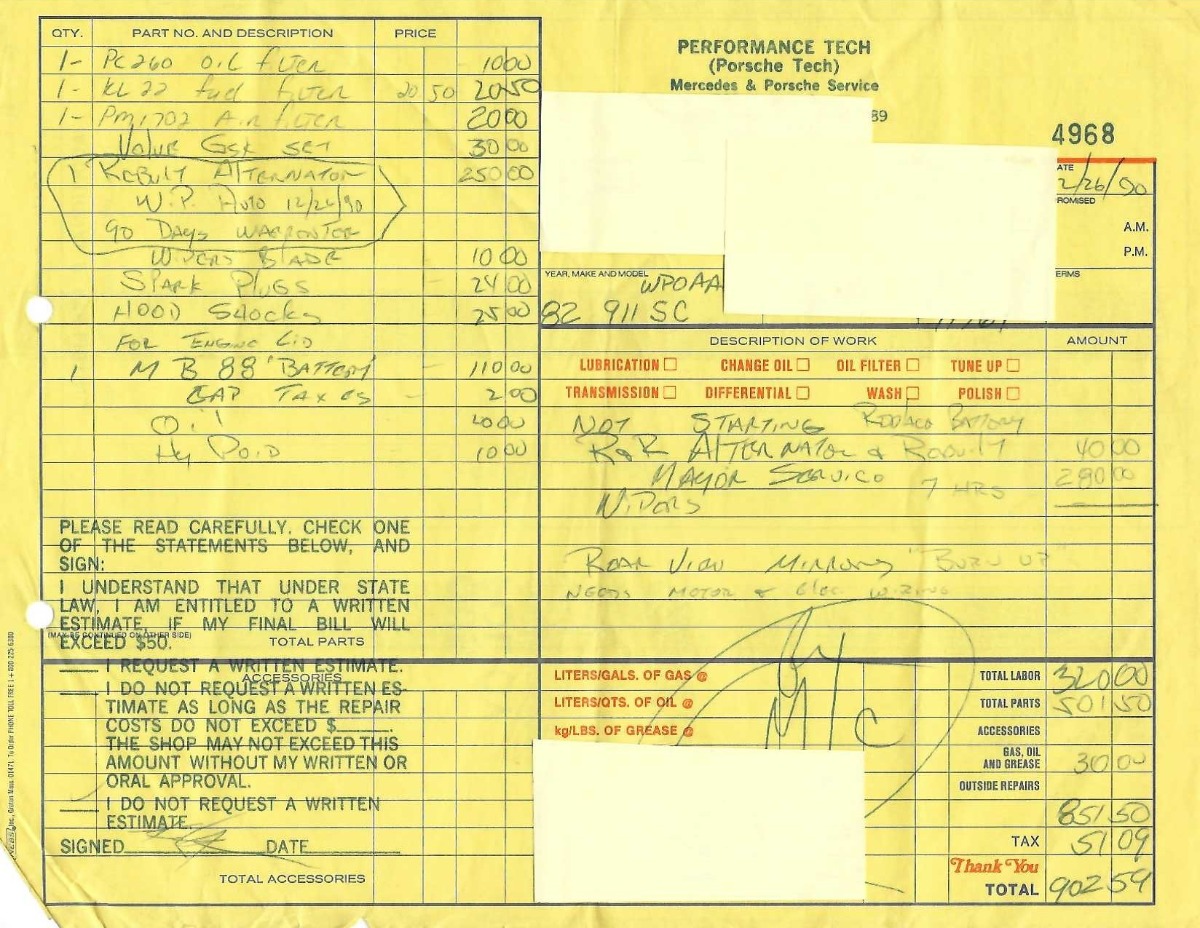 QTY. PART NO. AND DESCRIPTION PRICE
1- PC260 OIL FILTER 10 00
1- KL22 fuel FILTER 20 50 20 50
1- PM1702 AIR FILTER 20 00
Valve GSK SET 30 00
1 Rebuilt Alternator 250 00
W.P. Auto 12/26/90
90 Days
Wipers Blade 10 00
Spark Plugs 24 00
Hood Shocks 25 00
For Engine Lid
1 M B 88 Battery 110 00
Taxes 2 00
Oil 20 00
Hy Poid 10 00
PLEASE READ CAREFULLY. CHECK ONE
OF THE STATEMENTS BELOW, AND
SIGN:
I UNDERSTAND THAT UNDER STATE
LAW, I AM ENTITLED TO A WRITTEN
ESTIMATE, IF MY FINAL BILL WILL
EXCEED $50.
(MAY BE CONTINUED ON OTHER SIDE)
TOTAL PARTS
I REQUEST A WRITTEN ESTIMATE.
ACCESSORIES
I DO NOT REQUEST A WRITTEN ES-
TIMATE AS LONG AS THE REPAIR
COSTS DO NOT EXCEED $
THE SHOP MAY NOT EXCEED THIS
AMOUNT WITHOUT MY WRITTEN OR
ORAL APPROVAL.
I DO NOT REQUEST A WRITTEN
ESTIMATE.
SIGNED DATE
TOTAL ACCESSORIES
PERFORMANCE TECH
(Porsche Tech)
Mercedes & Porsche Service
89
4968
ATE
2/26/90
ROMISED
A.M.
P.M.
YEAR, MAKE AND MODEL WPOAA
ERMS
82 911 SC
DESCRIPTION OF WORK AMOUNT
LUBRICATION CHANGE OIL OIL FILTER TUNE UP
TRANSMISSION DIFFERENTIAL WASH POLISH
NOT STARTING Battery
R&R ALTERNATOR & Rebuilt 40 00
Mayor Service 7 HRS 280 00
Wipors
Rear View Mirrors "Burn up"
Needs Motor & Elec Wiring
LITERS/GALS. OF GAS @
LITERS/QTS. OF OIL @
kg/LBS. OF GREASE @
M/C
TOTAL LABOR 320 00
TOTAL PARTS 501 50
ACCESSORIES
GAS, OIL
AND GREASE 30 00
OUTSIDE REPAIRS
851 50
TAX 51 09
Thank You
TOTAL 902 59